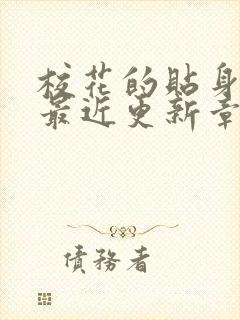 校花的貼身
最近更新章
債務者